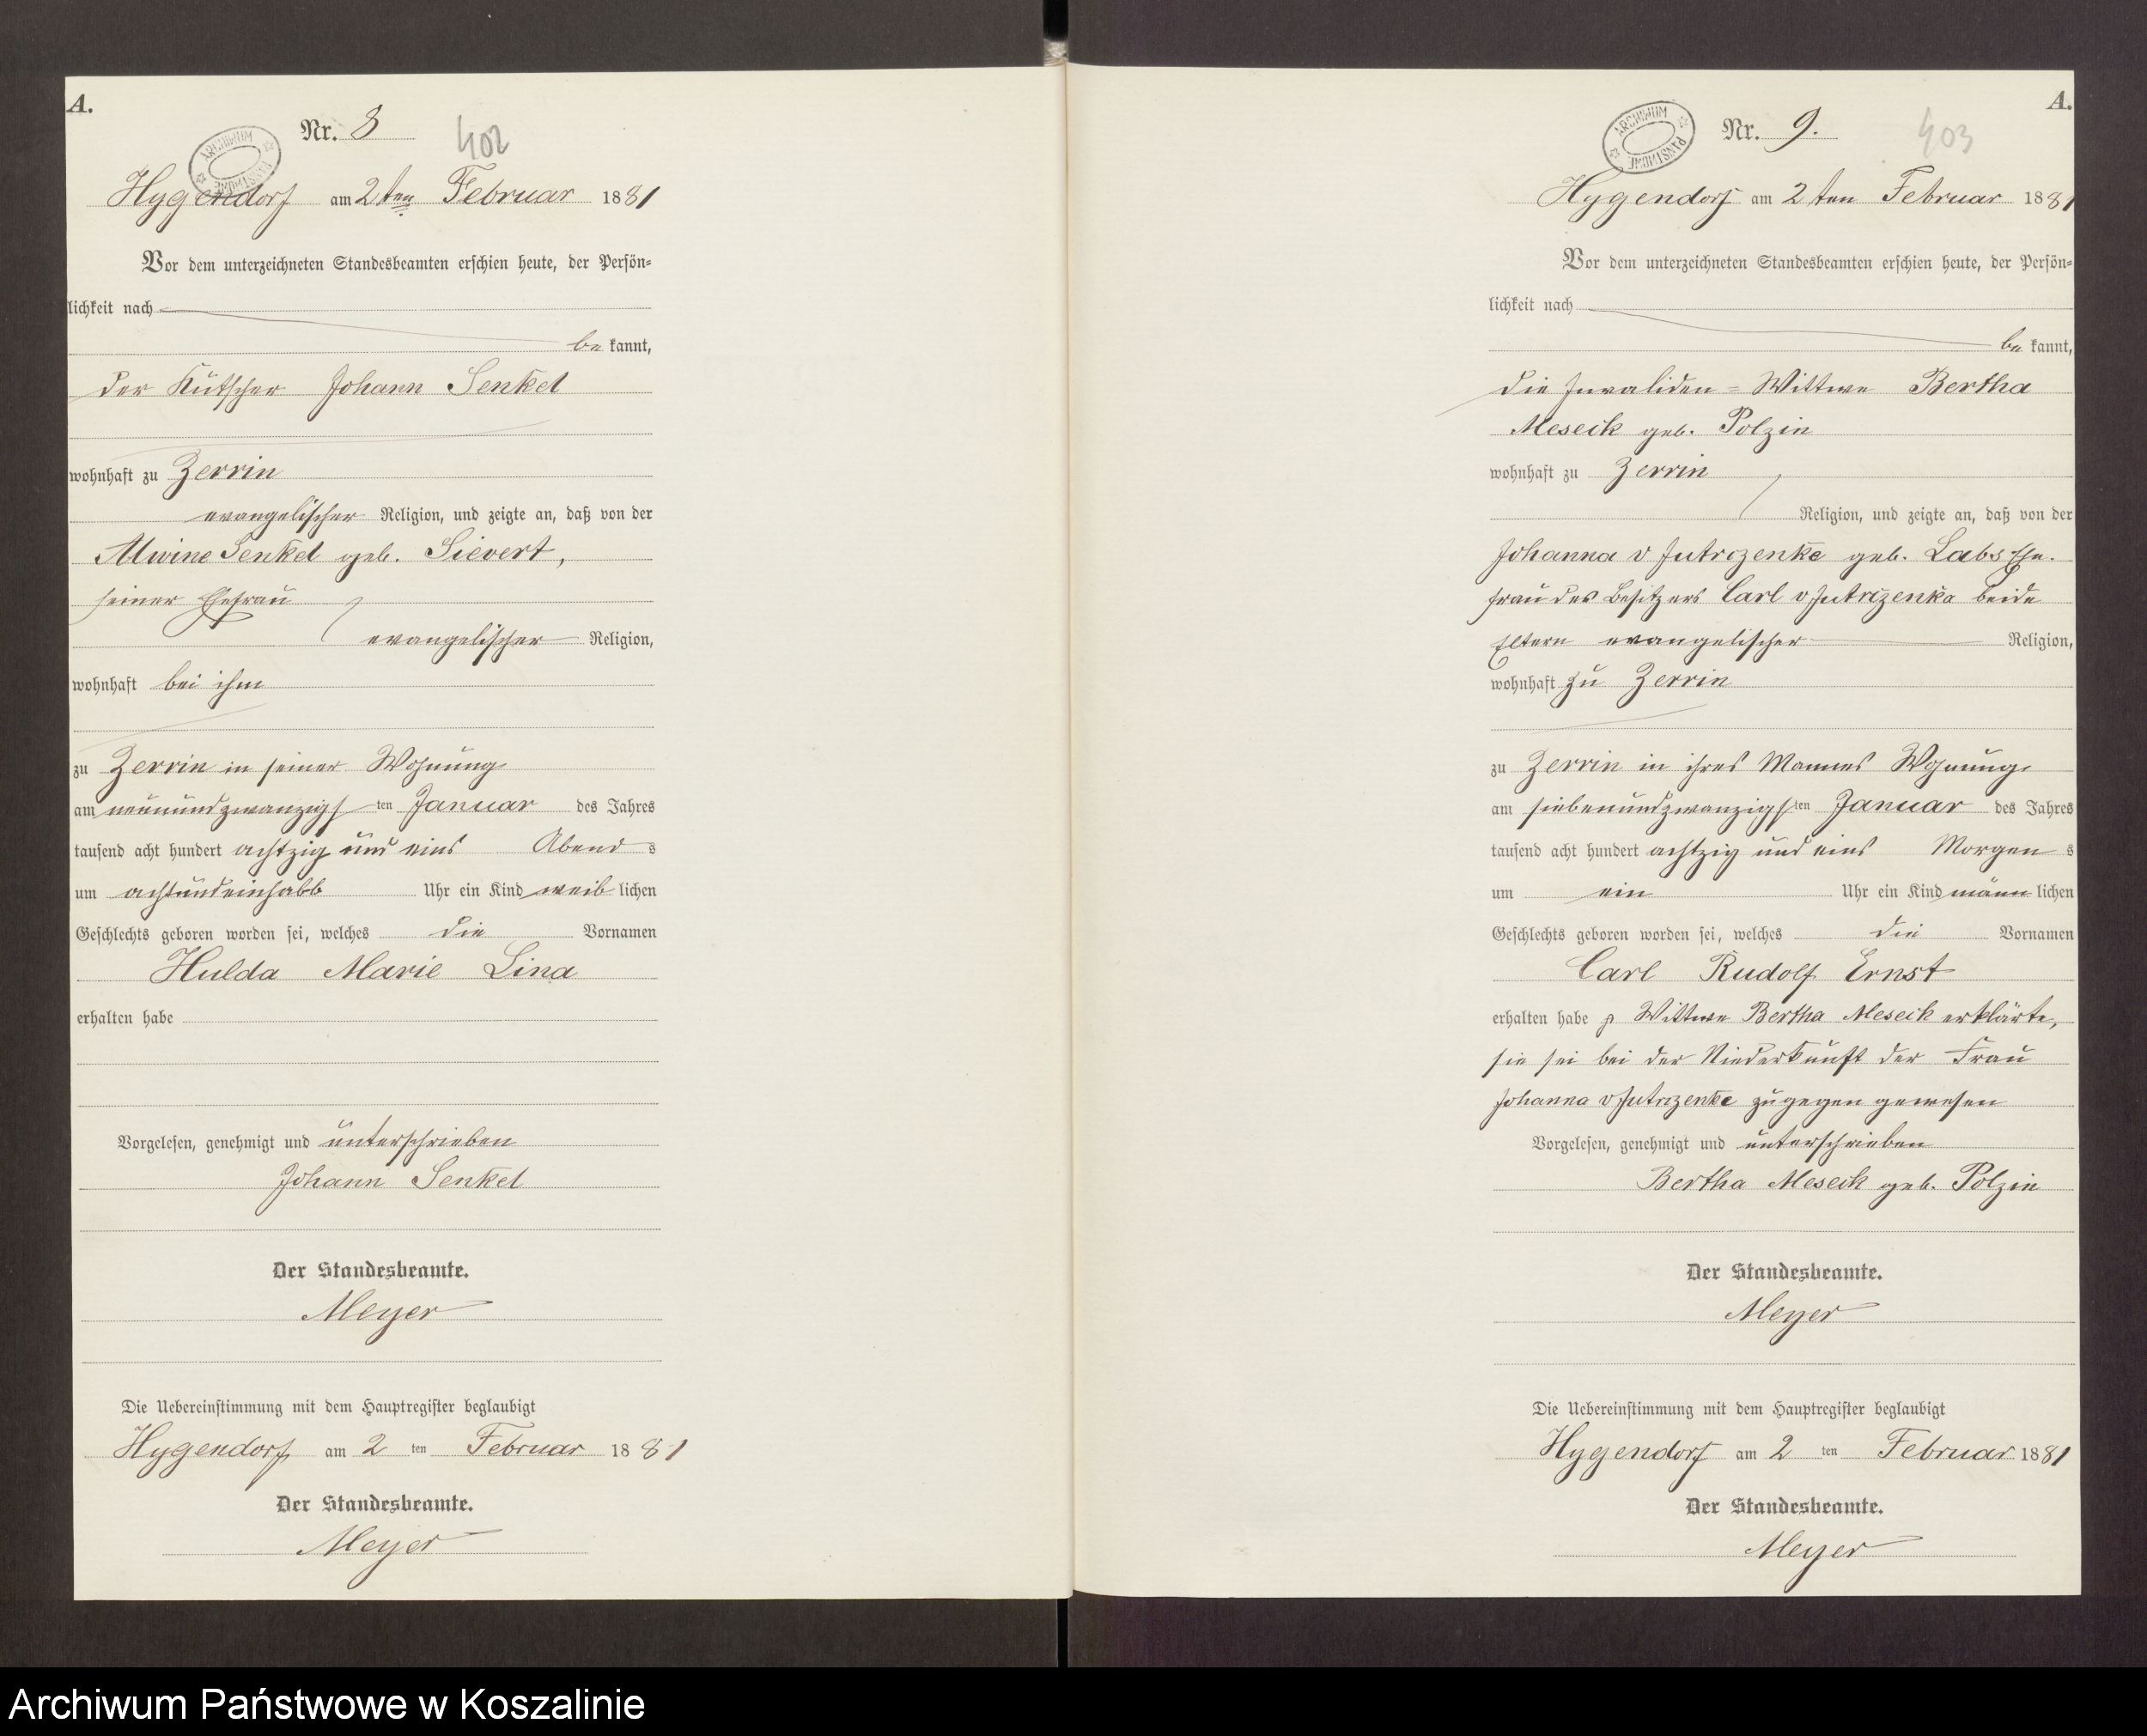 A.
Nr. 8
402
ARCHIWUM PAŃSTWOWE
Hygendorf am 2ten Februar 1881
Vor dem unterzeichneten Standesbeamten erschien heute, der Persön-
lichkeit nach
be kannt,
der Kutscher Johann Senkel
wohnhaft zu Zerrin
evangelischer Religion, und zeigte an, daß von der
Alwine Senkel geb. Sievert,
seiner Ehefrau
evangelischer Religion,
wohnhaft bei ihm
zu Zerrin in seiner Wohnung
am neunundzwanzigsten Januar des Jahres
tausend acht hundert achtzig und eins Abends
um achtundeinhalb Uhr ein Kind weiblichen
Geschlechts geboren worden sei, welches die Vornamen
Hulda Marie Lina
erhalten habe
Vorgelesen, genehmigt und unterschrieben
Johann Senkel
Der Standesbeamte.
Meyer
Die Uebereinstimmung mit dem Hauptregister beglaubigt
Hygendorf am 2 ten Februar 1881
Der Standesbeamte.
Meyer
A.
Nr. 9.
403
ARCHIWUM PAŃSTWOWE
Hygendorf am 2 ten Februar 1881
Vor dem unterzeichneten Standesbeamten erschien heute, der Persön-
lichkeit nach
be kannt,
die Invaliden-Wittwe Bertha
Meseck geb. Polzin
wohnhaft zu Zerrin
Religion, und zeigte an, daß von der
Johanna v Jutrzenke geb. Labs Ehe-
frau des Besitzers Carl v Jutrzenka beide
Eltern evangelischer Religion,
wohnhaft zu Zerrin
zu Zerrin in ihres Mannes Wohnung
am siebenundzwanzigsten Januar des Jahres
tausend acht hundert achtzig und eins Morgens
um ein Uhr ein Kind männlichen
Geschlechts geboren worden sei, welches die Vornamen
Carl Rudolf Ernst
erhalten habe Wittwe Bertha Meseck erklärte,
sie sei bei der Niederkunft der Frau
Johanna v Jutrzenke zugegen gewesen
Vorgelesen, genehmigt und unterschrieben
Bertha Meseck geb. Polzin
Der Standesbeamte.
Meyer
Die Uebereinstimmung mit dem Hauptregister beglaubigt
Hygendorf am 2 ten Februar 1881
Der Standesbeamte.
Meyer
Archiwum Państwowe w Koszalinie